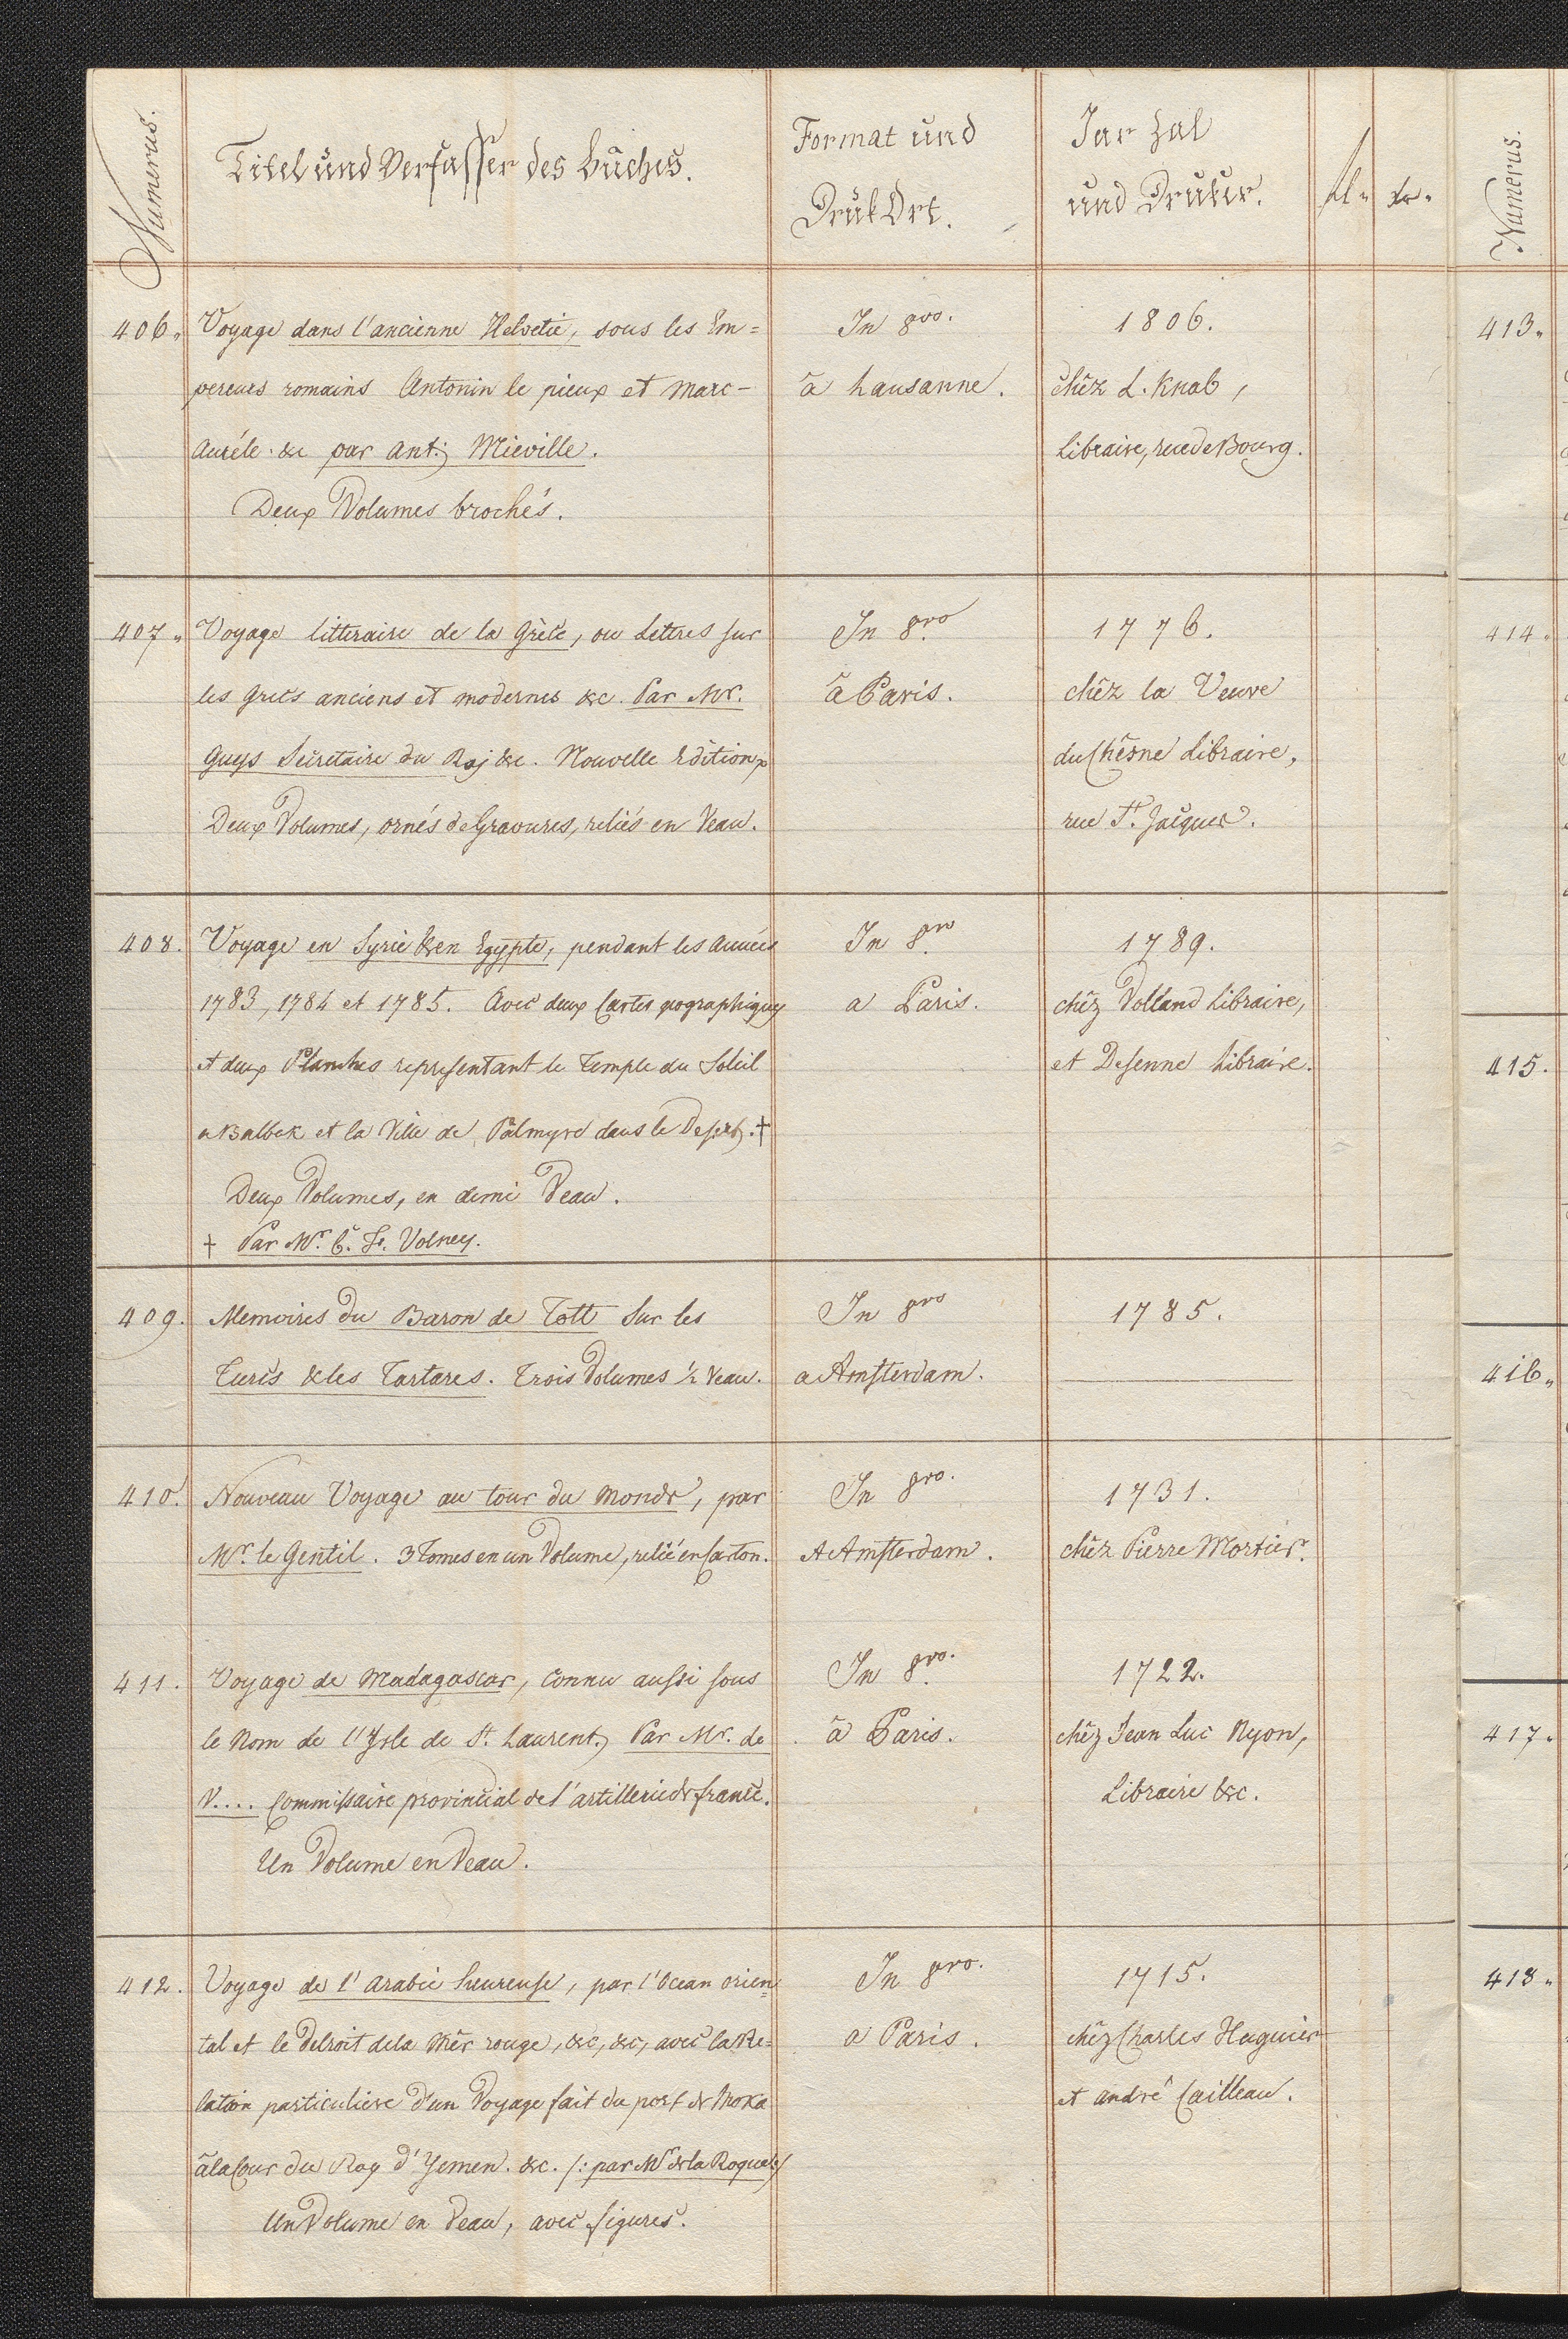 Numerus.
Titel und Verfasser des Buches.
Format und
Druk Ort.
Jar Zal
und Druker.
fl. xr.
Numerus.
406. Voyage dans l'ancienne Helvetie, sous les Em=
pereurs romains Antonin le pieux et Marc-
Auréle. &c par Ant: Mieville.
Deux Volumes brochés.
In 8vo.
à Lausanne.
1806.
chêz L. Knab,
Libraire, rue de Bourg.
407. Voyage litteraire de la Grèce, ou Lettres sur
les Grecs anciens et modernes &c. Par Mr.
Guys Secretaire du Roj &c. Nouvelle Edition
Deux Volumes, ornés de Gravures, reliés en Veau.
In 8vo
à Paris.
1776.
chêz la Veuve
du Chêsne Libraire,
rue St. Jacques.
408. Voyage en Syrie & en Egypte, pendant les Années
1783, 1784 et 1785. Avec deux Cartes geographiques
et deux Planches representant le Temple du Soleil
a Balbek et la Ville de Palmyre dans le Desert. †
Deux Volumes, en demi Veau.
† Par Mr. C. F. Volney.
In 8vo
a Paris.
1789.
chêz Volland Libraire,
et Desenne Libraire.
409. Memoires du Baron de Tott sur les
Turcs & les Tartares. Trois Volumes 1/2 Veau.
In 8vo
a Amsterdam.
1785.
410. Nouveau Voyage au tour du Monde, par
Mr. le Gentil. 3 Tomes en un Volume, relié en Carton.
In 8vo.
A Amsterdam.
1731.
chêz Pierre Mortier.
411. Voyage de Madagascar, connu aussi sous
le Nom de l'Isle de St. Laurent, Par Mr. de
V.... Commissaire provincial de l'artillerie de france.
Un Volume en Veau.
In 8vo.
à Paris.
1722.
chêz Jean Luc Nyon,
Libraire &c.
412. Voyage de l'Arabie heureuse, par l'Ocean orien=
tal et le Detroit de la Mèr rouge, &c, &c, avec la Re=
lation particuliere d'un Voyage fait du port de Moka
à la Cour du Roy d'Yemen. &c. /: par Mr de la Roque :/
Un Volume en Veau, avec figures.
In 8vo.
a Paris.
1715.
chêz Charles Huguier
et André Cailleau.
413.
414.
415.
416.
417.
418.